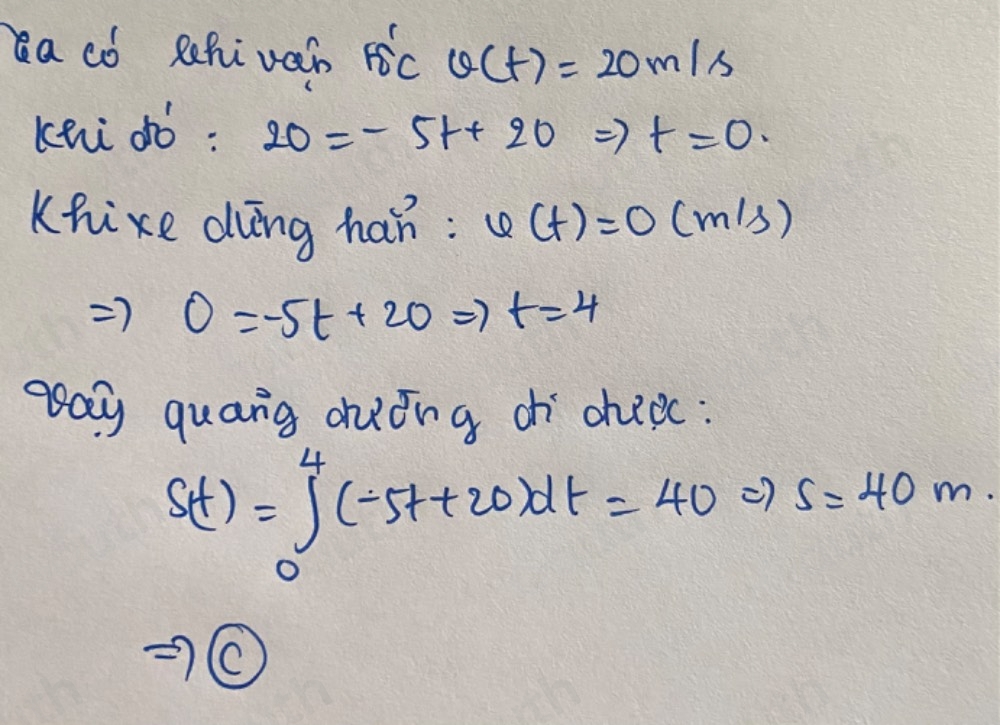 Ta có khi vận tốc v(t) = 20 m/s
Khi đó : 20 = - 5t + 20 => t = 0.
Khi xe dừng hẳn : v(t) = 0 (m/s)
=> 0 = -5t + 20 => t = 4
Vậy quảng đường đi được :
S(t) = ∫₀⁴ (-5t + 20)dt = 40 => S = 40 m.
=> Ⓒ